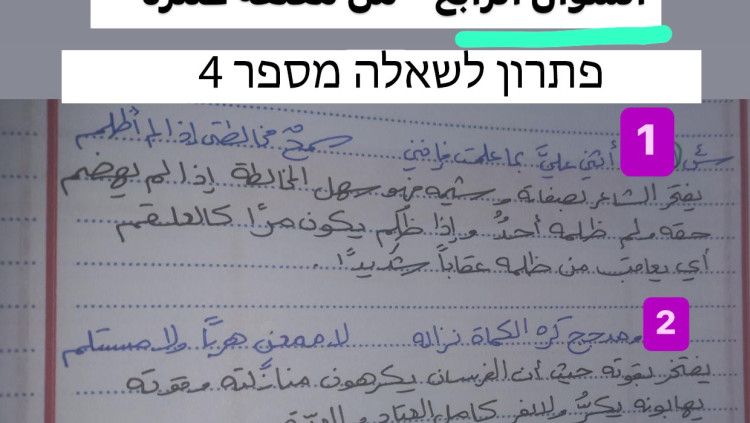 السؤال الرابع - من معلقة عنترة
פתרון לשאלה מספר 4
1
أثني عليّ بما علمت فإنني سمحٌ مخالطتي إذا لم أُظلم
يفتخر الشاعر بصفاته وشيمه فهو سهل المخالطة إذا لم يهضم
حقه ولم يظلمه أحدٌ وإذا ظُلم يكون مرًّا كالعلقم
أي يعاقب من ظلمه عقاباً شديدًا.
2
ومدجج كره الكماة نزاله لا ممعنٍ هربًا ولا مستسلم
يفتخر بقوته حيث أن الفرسان يكرهون منازلته وقوته
يهابونه يكرُّ ولا يفر كامل العتاد و